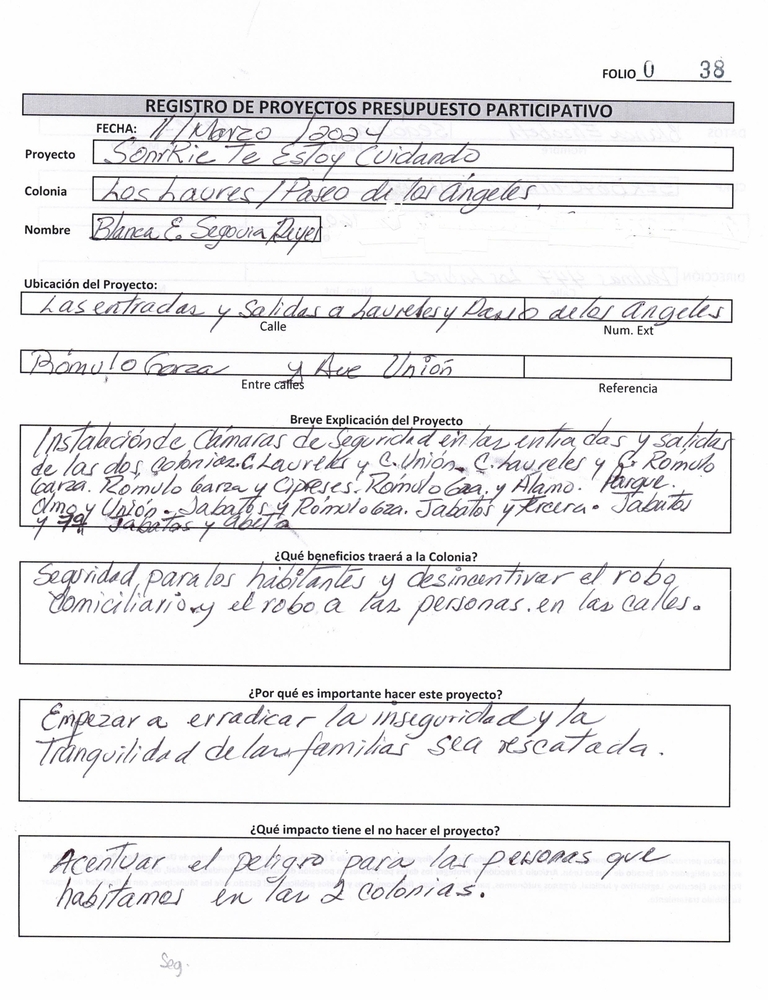 FOLIO 0 38
REGISTRO DE PROYECTOS PRESUPUESTO PARTICIPATIVO
FECHA: 11/Marzo/2024
Proyecto SonrRie Te Estoy Cuidando
Colonia Los Laures/Paseo de los ángeles
Nombre Blanca E. Segovia Reyes
Ubicación del Proyecto:
Las entradas y Salidas a Laureles y Paseo de los Angeles
Calle Num. Ext
Rómulo Garza y Ave Unión
Entre calles Referencia
Breve Explicación del Proyecto
Instalación de Cámaras de Seguridad en las entradas y salidas
de las dos colonias. C. Laureles y C. Unión. C. Laureles y C. Romulo
Garza. Rómulo Garza y Cipreses. Rómulo Gza. y Álamo. Parque.
Olmo y Unión. Jabatos y Rómulo Gza. Jabatos y tercera. Jabatos
y 7ª Jabatos y Abeta
¿Qué beneficios traerá a la Colonia?
Seguridad para los habitantes y desincentivar el robo
domiciliario y el robo a las personas en las calles.
¿Por qué es importante hacer este proyecto?
Empezar a erradicar la inseguridad y la
tranquilidad de las familias sea rescatada.
¿Qué impacto tiene el no hacer el proyecto?
Acentuar el peligro para las personas que
habitamos en las 2 colonias.
Seg.